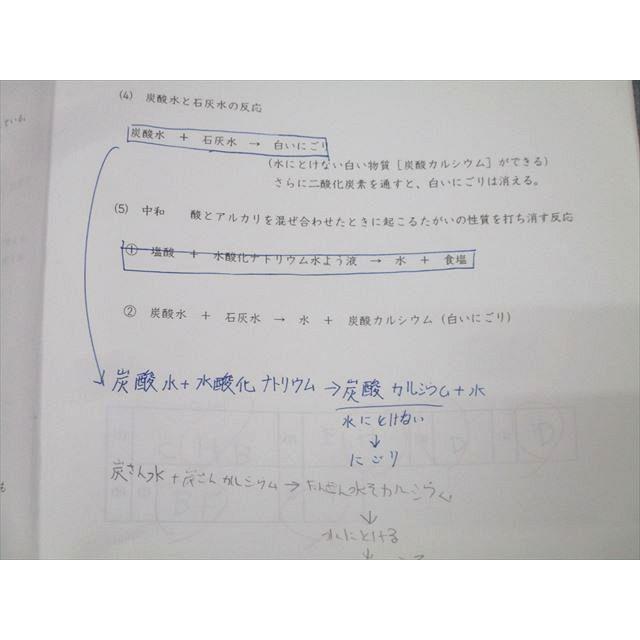 (4) 炭酸水と石灰水の反応
炭酸水 + 石灰水 → 白いにごり
(水にとけない白い物質[炭酸カルシウム]ができる)
さらに二酸化炭素を通すと、白いにごりは消える。
(5) 中和 酸とアルカリを混ぜ合わせたときに起こるたがいの性質を打ち消す反応
① 塩酸 + 水酸化ナトリウム水よう液 → 水 + 食塩
② 炭酸水 + 石灰水 → 水 + 炭酸カルシウム(白いにごり)
炭酸水+水酸化ナトリウム→炭酸カルシウム+水
水にとけない
↓
にごり
炭さん水+炭さんカルシウム→たんさん水そカルシウム
↓
水にとける
↓